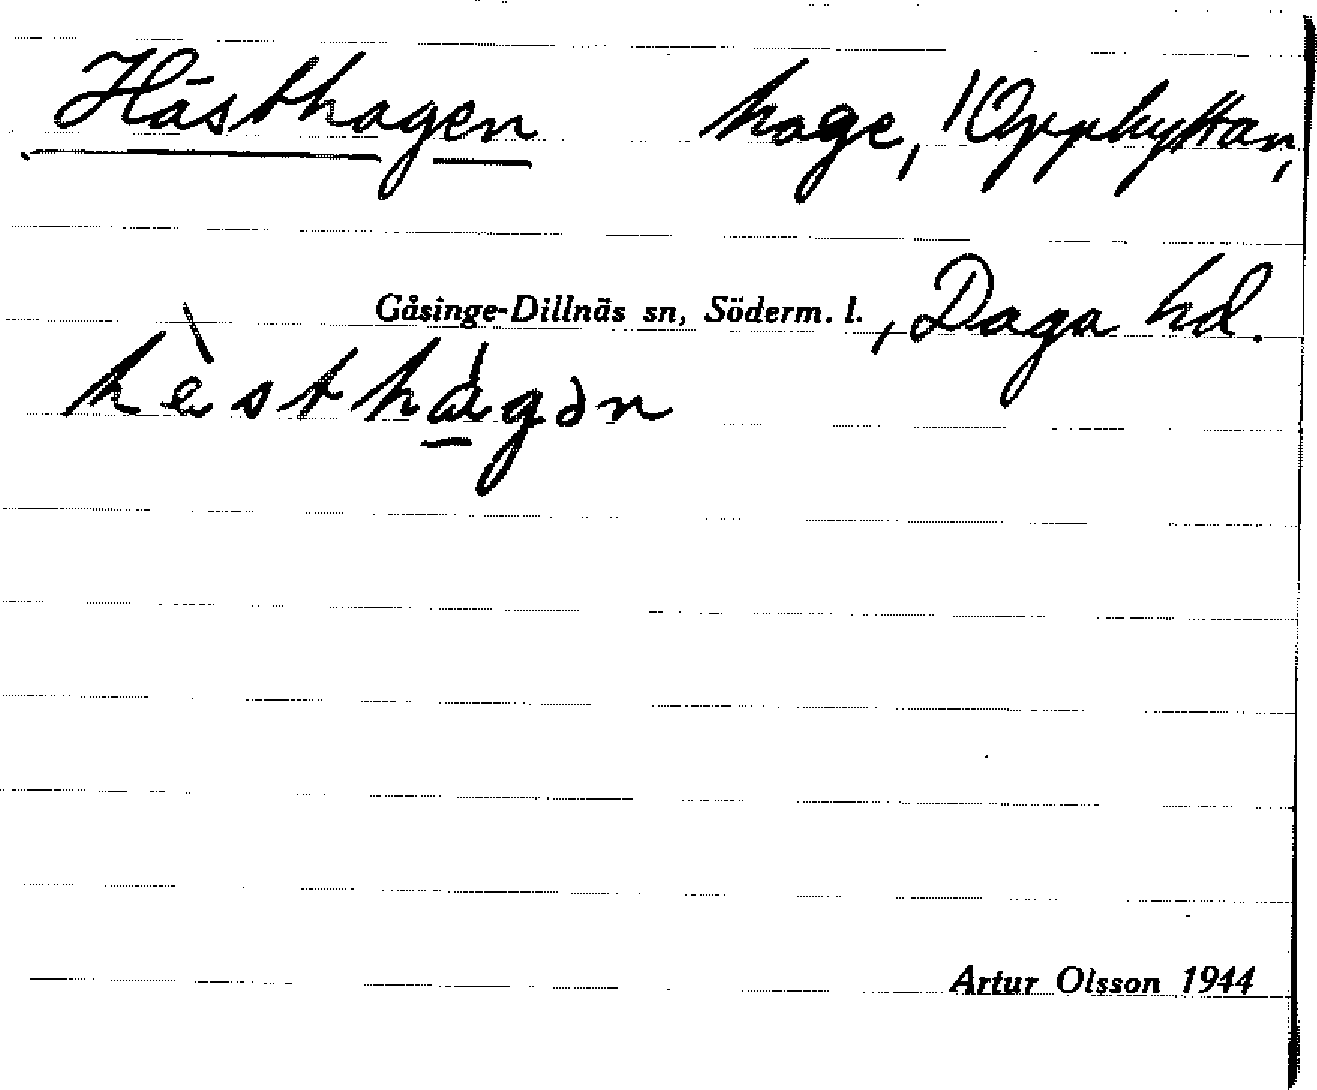 Hästhagen hage, /Opphyttan,
Gåsinge-Dillnäs sn, Söderm. l., Daga hd.
hὲsthágən
Artur Olsson 1944